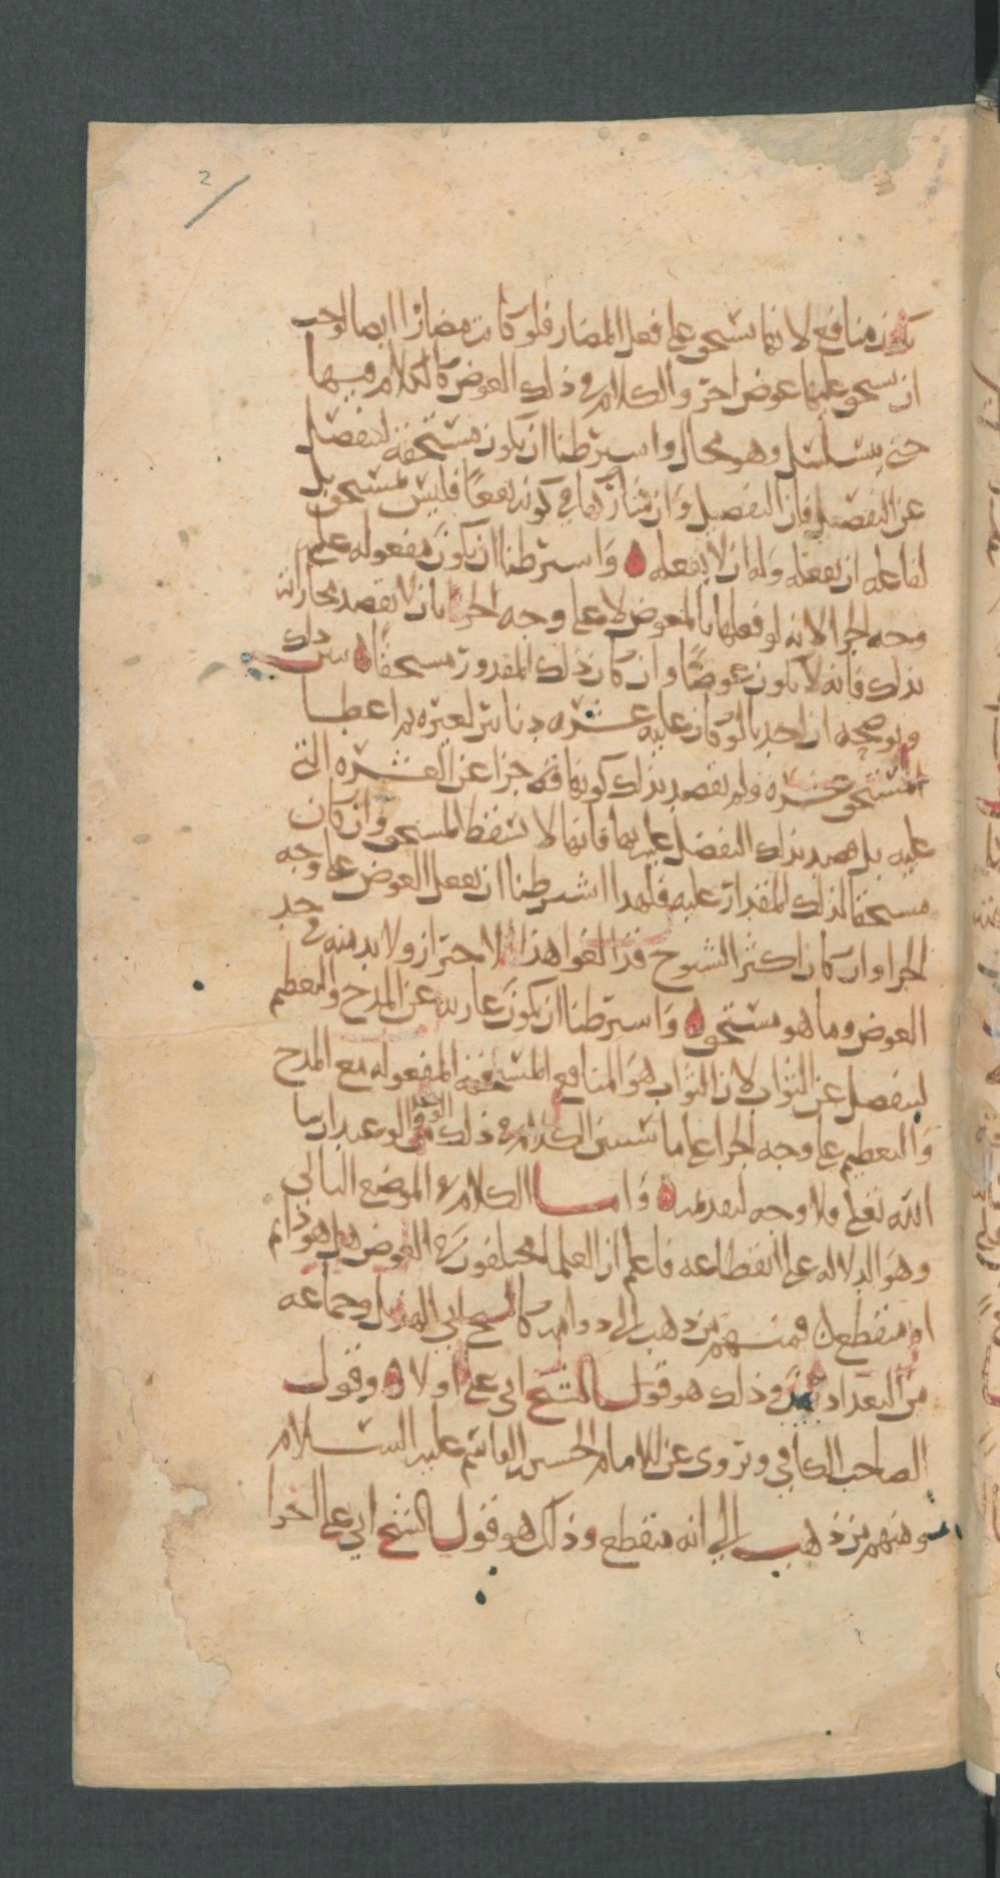 2
تكون منافع لانها تستحق على فعل المضار فلو كانت مضارا ايضا لوجب
ان يستحق عليها عوض اخر والكلام في ذلك العوض كالكلام فيها
حتى يتسلسل وهو محال واشترطنا ان يكون مستحقة لتنفصل
عن التفضل فان التفضل وان شاركها في كونه نفعا فليس بمستحق بل
لفاعله ان يفعله وله ان لا يفعله واشترطنا ان يكون مفعوله على
وجه الجزا لانه لو فعلها بالمعوض لا على وجه الجزا بان لا يقصد مجازاته
بذلك فانه لا يكون عوضا وان كان ذلك المقدور مستحقا ذلك
ويوضحه ان احدنا لو كان عليه عشره دنانير لغيره ثم اعطا
المستحق عشره ولم يقصد بذلك كونها جزا عن العشره التي
عليه بل قصد بذلك التفضل عليه بها فانها لا تسقط المستحق وان كان
مستحقا لذلك المقدار عليه فلهذا اشترطنا ان يفعل العوض على وجه
الجزا وان كان اكثر الشيوخ قد الغوا هذا الاحتراز ولا بد منه في حد
العوض وما هو مستحق واشترطنا ان يكون عاريه عن المدح والتعظيم
لينفصل عن الثواب لان الثواب هو المنافع المستحقه المفعوله مع المدح
والتعظيم على وجه الجزا على ما سيبين الكلام في ذلك في الوعد والوعيد ان شا
الله تعلى ولا وجه لتقدمه واما الكلام في الموضع الثاني
وهو الدلاله على انقطاعه فاعلم ان العلما مختلفون في العوض هل هو دايم
او منقطع فمنهم من ذهب الى دوامه كالشيخ ابي الهذيل وجماعه
من البغداديين وذلك هو قول الشيخ ابي علي اولا وقول
الصاحب الكافي وتروى عن الامام الحسين القاسم عليه السلام
ومنهم من ذهب الى انه منقطع وذلك هو قول الشيخ ابي علي اخرا